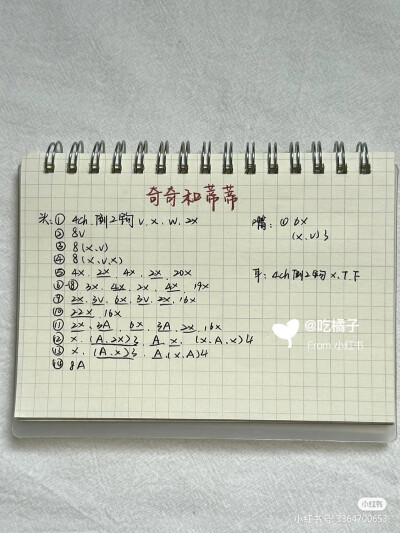 奇奇和蒂蒂
头:① 4ch 倒2钩 v.x.w.2x
② 8v
③ 8(x.v)
④ 8(x.v.x)
⑤ 4x. 2x. 4x. 2x. 20x
⑥-⑧ 3x. 4x. 2x. 4x. 19x
⑨ 2x. 3v. 6x. 3v. 2x. 16x
⑩ 22x. 16x
⑪ 2x. 3A. 6x. 3A. 2x. 16x
⑫ x.(A.2x)3. A. x. (x.A.x)4
⑬ x.(A.x)3. A.(x.A)4
⑭ 8A
嘴:① 6x
(x.v)3
耳:4ch 倒2钩 x.T.F
@吃橘子
From 小红书
小红书
小红书号:3364700653